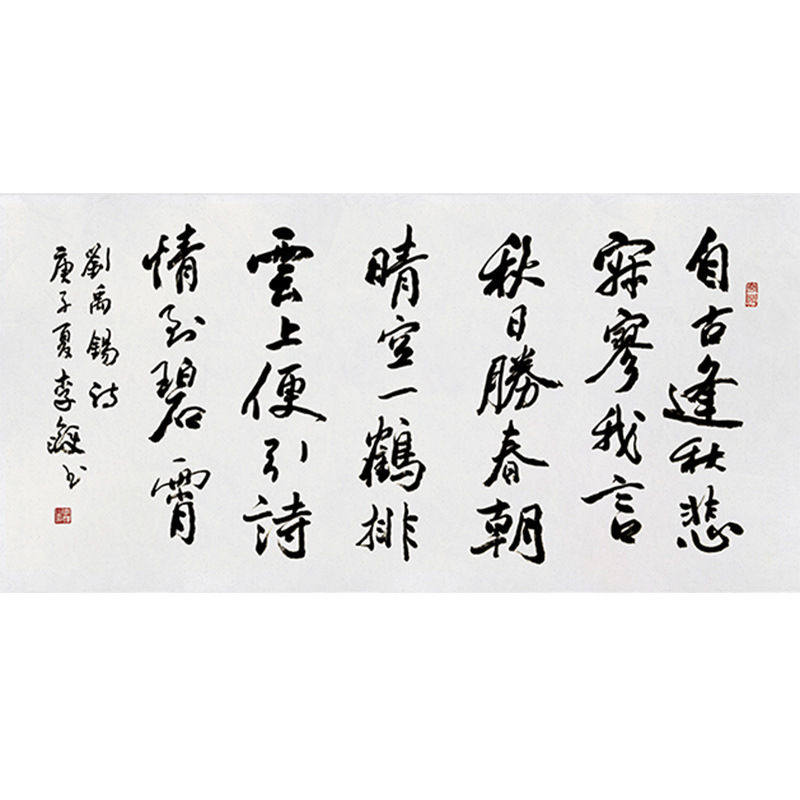 自古逢秋悲
寂寥我言
秋日勝春朝
晴空一鶴排
雲上便引詩
情到碧霄
劉禹錫詩
庚子夏李 書